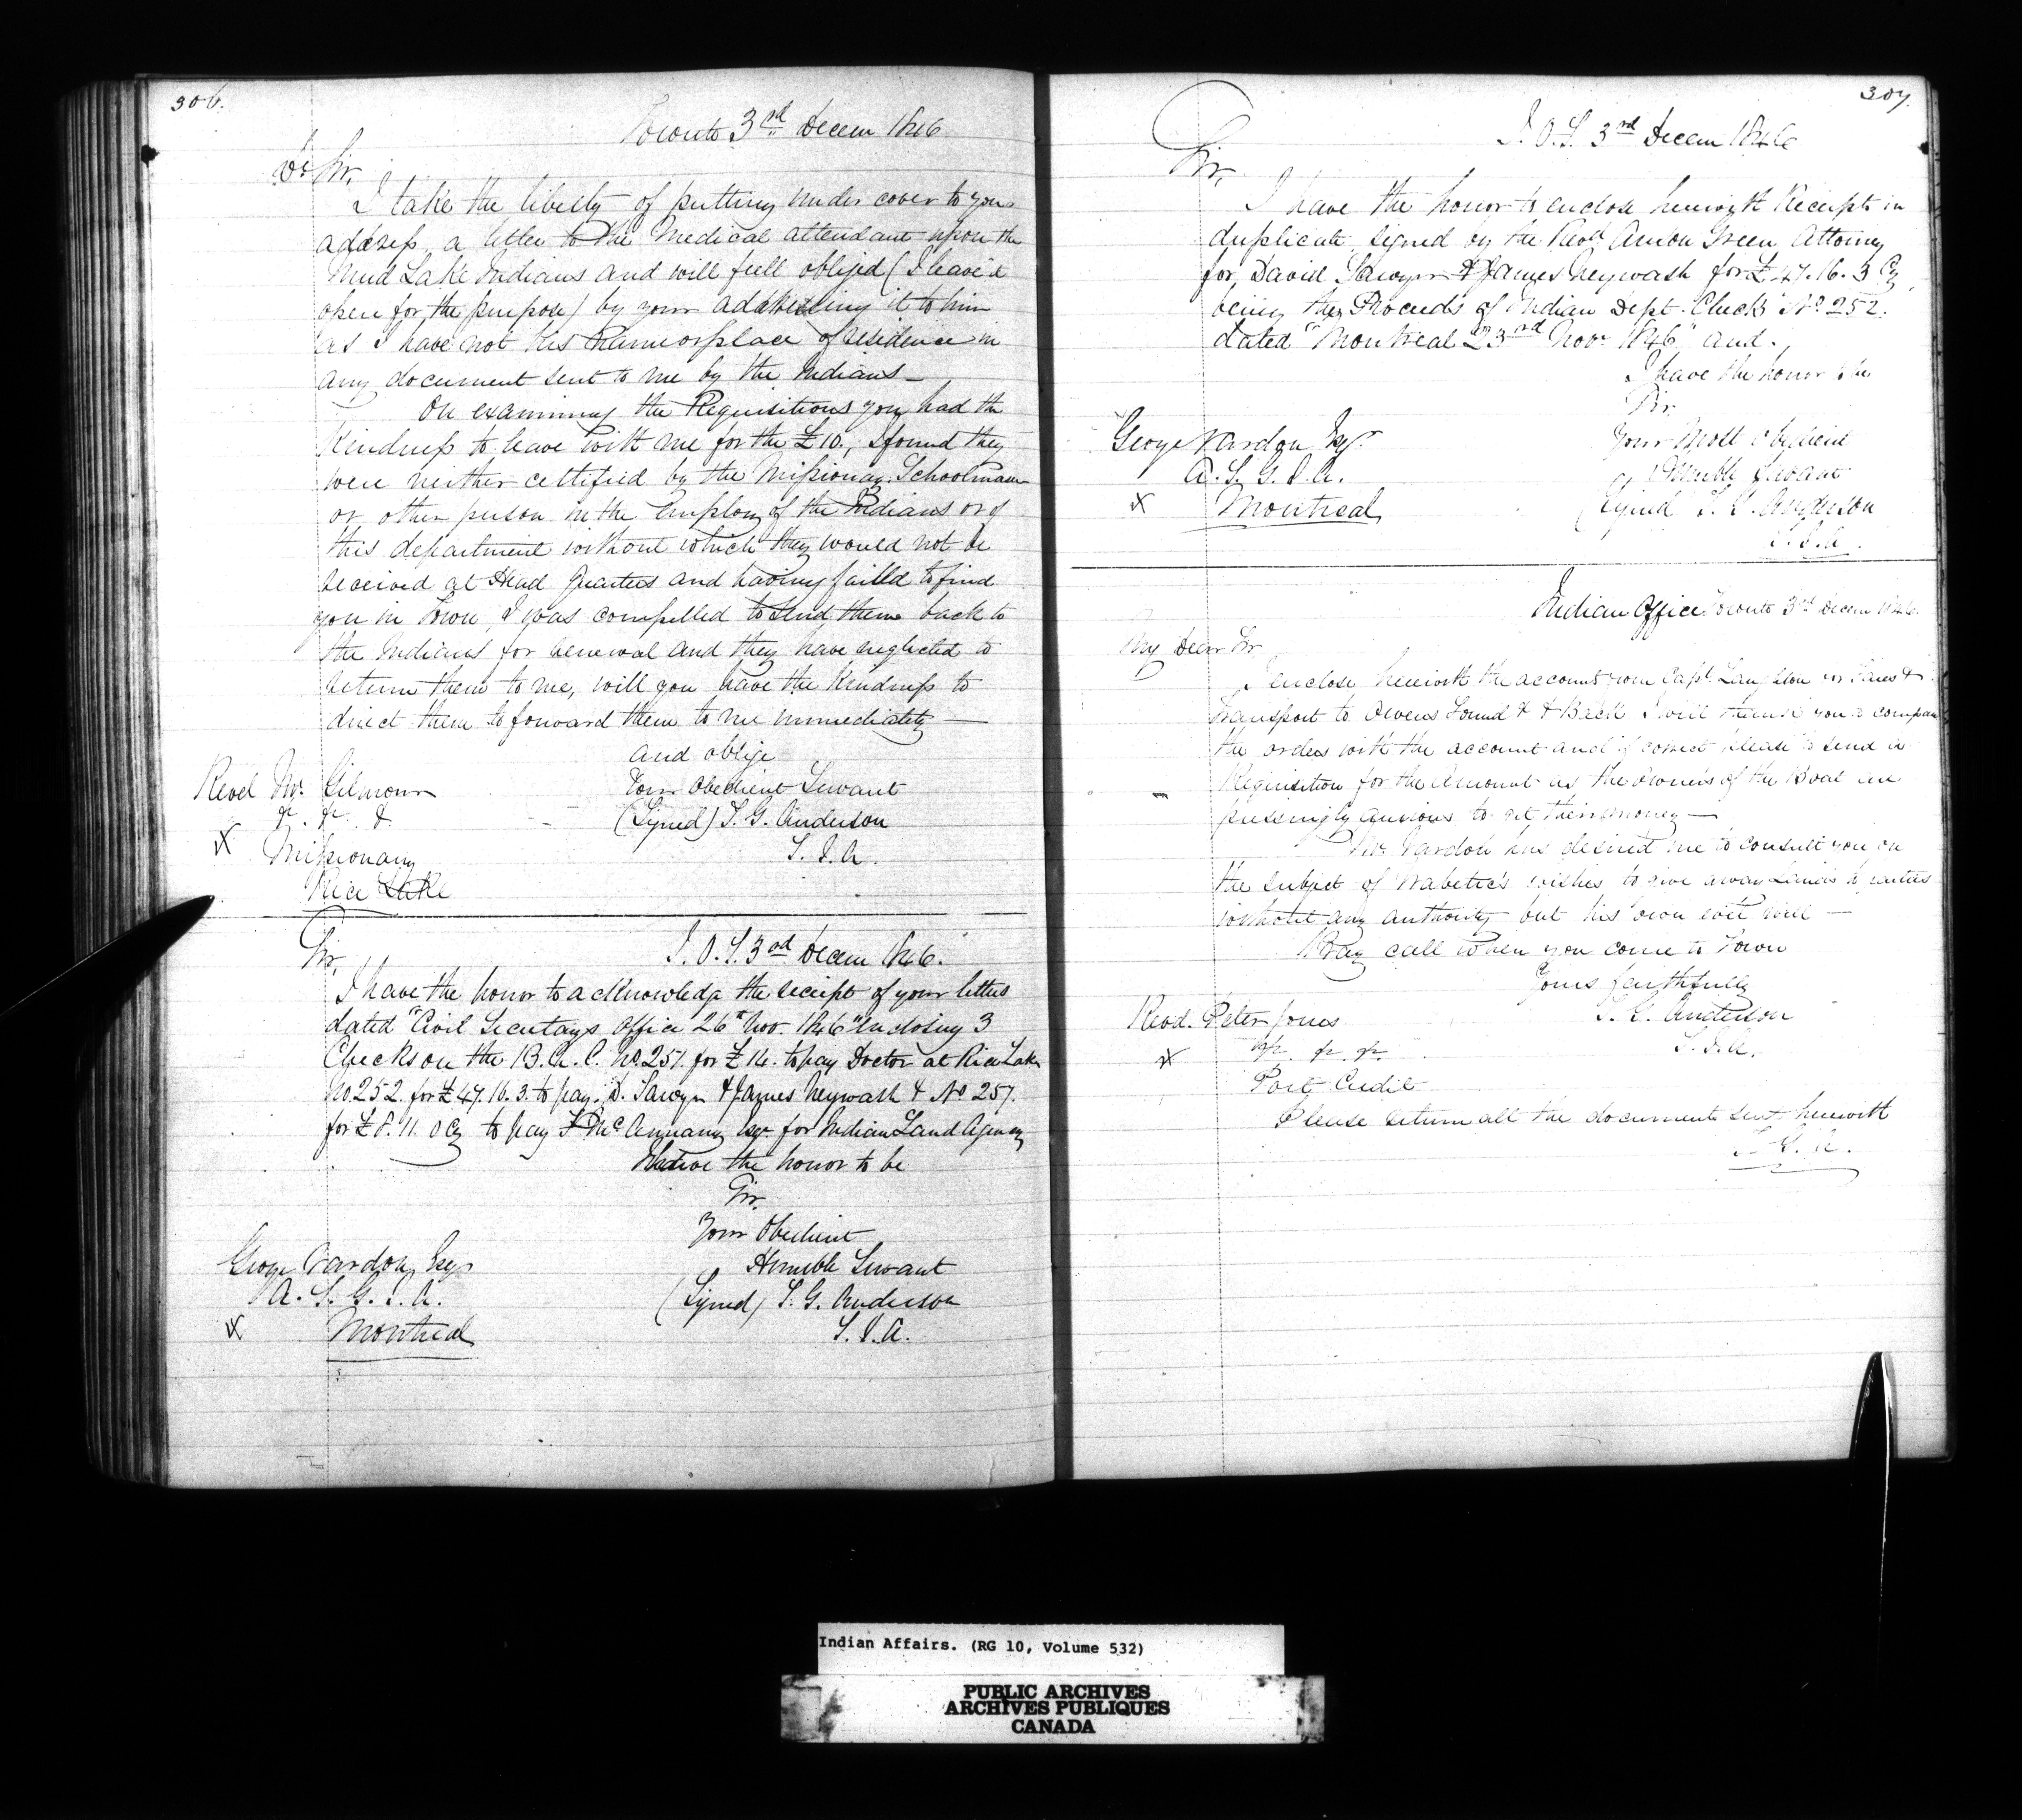 306.
Toronto 3rd Decem 1846
Dr Sir,
I take the liberty of putting under cover to your
address, a letter to the Medical attendant upon the
Mud Lake Indians and will feel obliged (I leave it
open for the purpose) by your addressing it to him
as I have not his name or place of residence in
any document sent to me by the Indians—
On examining the Requisitions you had the
Kindness to leave with me for the £10., I found they
were neither certified by the Missionary Schoolmaster
or other person in the employ of the Indians or of
this department without which they would not be
received at Head Quarters and having failed to find
you in Town, I was compelled to send them back to
the Indians for renewal and they have neglected to
return them to me, will you have the Kindness to
direct them to forward them to me immediately —
and oblige
Your Obedient Servant
(Signed) T. G. Anderson
S. I. A.
Revd Mr. Gilmour
&c. &c. &
Missionary
Rice Lake
I. O. T. 3rd Decem 1846.
Sir,
I have the honor to acknowledge the receipt of your letter
dated "Civil Secretarys Office 26th Nov. 1846" Enclosing 3
Checks on the B. U. C. No. 251. for £14. to pay Doctor at Rice Lake
No. 252. for £47. 16. 3. to pay. D. Sawyer & James Neywash & No 257.
for £8. 11. 0 Cy to pay Mc Annany Esqr for Indian Land Agency
I have the honor to be
Sir,
Your Obedient
Humble Servant
(Signed) T. G. Anderson
S. I. A.
George Vardon Esqr
A. S. G. I. A.
Montreal
307.
I. O. T. 3rd Decem 1846
Sir,
I have the honor to enclose herewith Receipts in
duplicate, signed by the Revd. Anson Green Attorney
for, David Sawyer & James Neywash for £47. 16. 3 Cy
being the Proceeds of Indian Dept. Check No. 252.
dated "Montreal 23rd Novr 1846" and.
I have the honor &c
Sir
Your Most Obedient
Humble Servant
(Signed T. G. Anderson
S. I. A.
George Vardon Esqr.
A. S. G. I. A.
Montreal
Indian Office Toronto 3rd Decem 1846
My Dear Sir
I enclose herewith the account from Capt. Laughton for Fares &
Transport to Owens Sound & Back I will thank you to compare
the orders with the account and if correct please to send a
Requisition for the Amount as the Owners of the Boat are
pressingly anxious to get their money —
Mr. Vardon has desired me to consult you on
the subject of Wabetic's wishes to give away Lands to parties
without any authority but his own will —
Pray call when you come to Town
Yours faithfully
T. G. Anderson
S. I. A.
Revd. Peter Jones
&c. &c. &c.
Port Credit
Please return all the documents sent herewith
T. G. A.
Indian Affairs. (RG 10, Volume 532)
PUBLIC ARCHIVES
ARCHIVES PUBLIQUES
CANADA